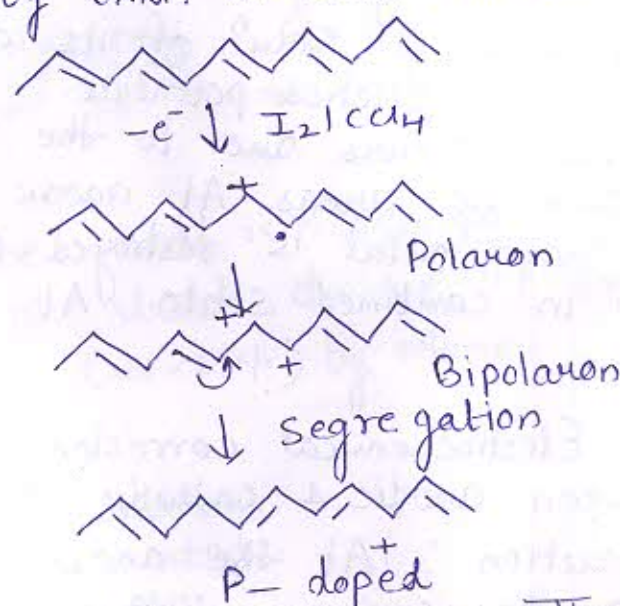 -e⁻ ↓ I₂/CCl₄
+
•
Polaron
+
+
Bipolaron
↓ Segregation
+
P- doped